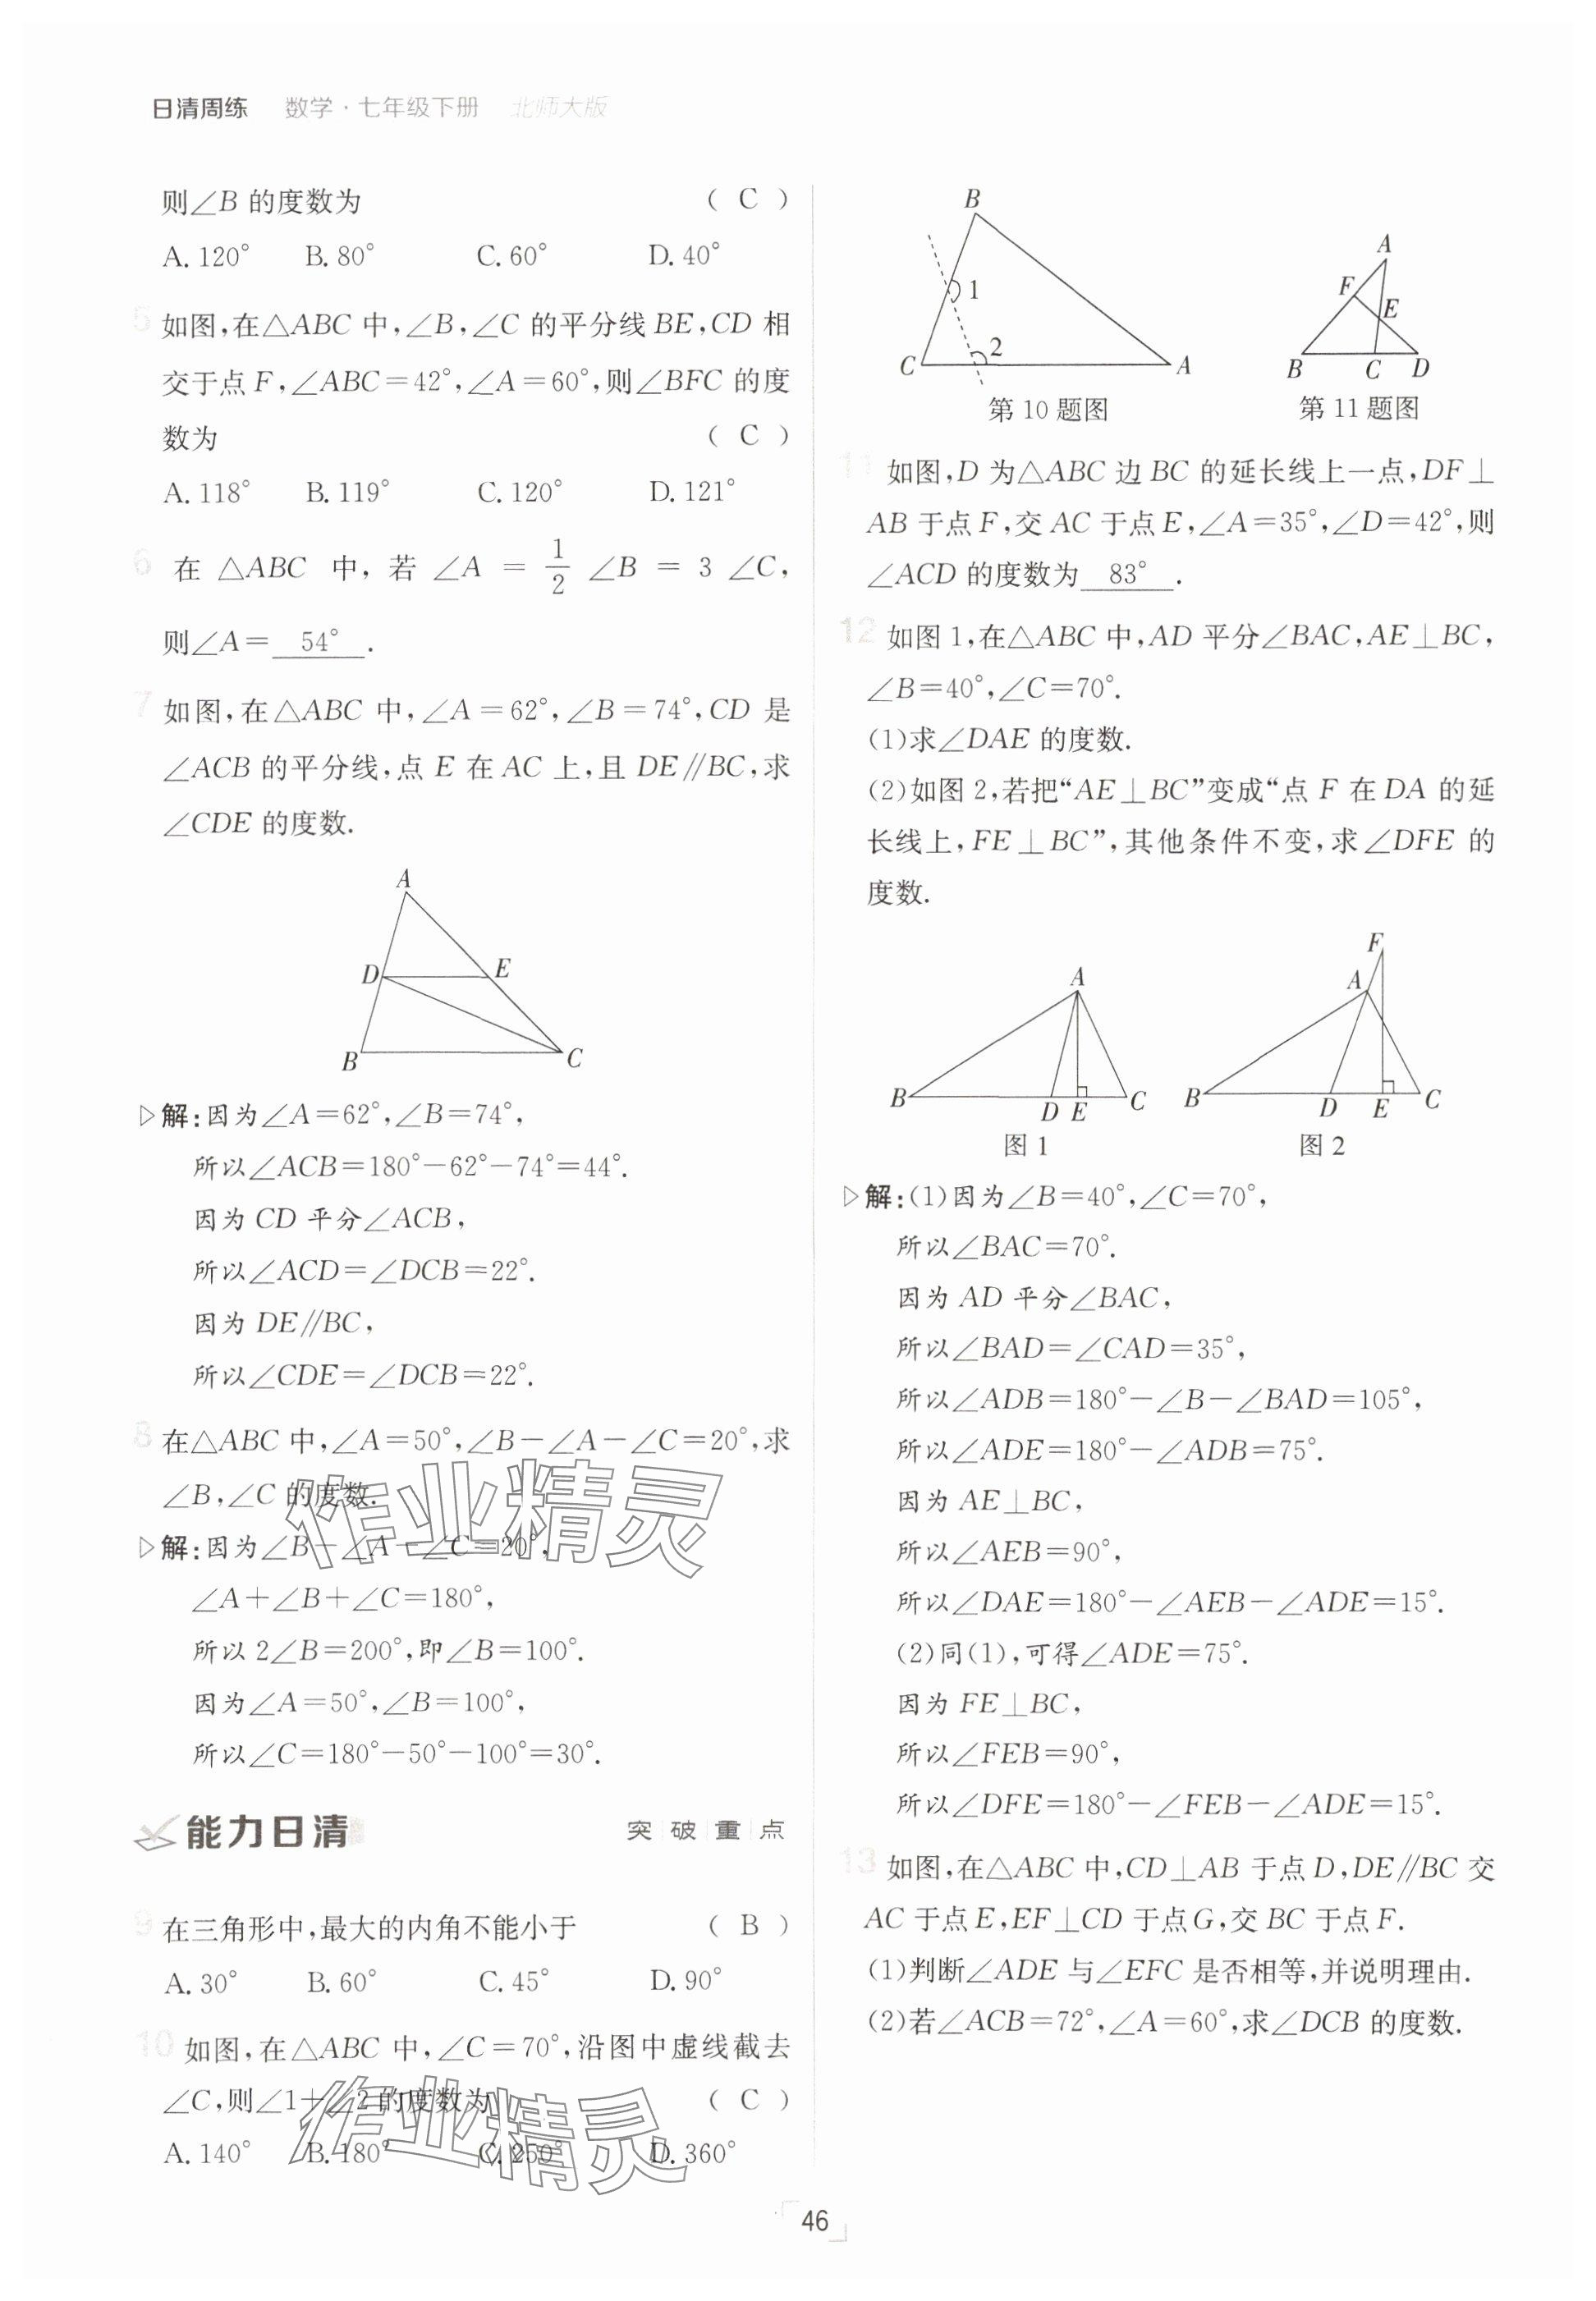 日清周练 数学·七年级下册 北师大版
则∠B 的度数为 ( C )
A. 120° B. 80° C. 60° D. 40°
5 如图,在△ABC 中,∠B,∠C 的平分线 BE,CD 相
交于点 F,∠ABC=42°,∠A=60°,则∠BFC 的度
数为 ( C )
A. 118° B. 119° C. 120° D. 121°
6 在 △ABC 中, 若 ∠A = 1/2 ∠B = 3 ∠C,
则∠A= 54° .
7 如图,在△ABC 中,∠A=62°,∠B=74°,CD 是
∠ACB 的平分线,点 E 在 AC 上,且 DE∥BC,求
∠CDE 的度数.
A
D E
B C
▷解:因为∠A=62°,∠B=74°,
所以∠ACB=180°-62°-74°=44°.
因为 CD 平分∠ACB,
所以∠ACD=∠DCB=22°.
因为 DE∥BC,
所以∠CDE=∠DCB=22°.
8 在△ABC 中,∠A=50°,∠B-∠A-∠C=20°,求
∠B,∠C 的度数.
▷解:因为∠B-∠A-∠C=20°,
∠A+∠B+∠C=180°,
所以 2∠B=200°,即∠B=100°.
因为∠A=50°,∠B=100°,
所以∠C=180°-50°-100°=30°.
作业精灵
能力日清 突破重点
9 在三角形中,最大的内角不能小于 ( B )
A. 30° B. 60° C. 45° D. 90°
10 如图,在△ABC 中,∠C=70°,沿图中虚线截去
∠C,则∠1+∠2 的度数为 ( C )
A. 140° B. 180° C. 250° D. 360°
作业精灵
B
1
2
C A
第 10 题图
A
F
E
B C D
第 11 题图
11 如图,D 为△ABC 边 BC 的延长线上一点,DF⊥
AB 于点 F,交 AC 于点 E,∠A=35°,∠D=42°,则
∠ACD 的度数为 83° .
12 如图 1,在△ABC 中,AD 平分∠BAC,AE⊥BC,
∠B=40°,∠C=70°.
(1)求∠DAE 的度数.
(2)如图 2,若把“AE⊥BC”变成“点 F 在 DA 的延
长线上,FE⊥BC”,其他条件不变,求∠DFE 的
度数.
A
B D E C
图 1
F
A
B D E C
图 2
▷解:(1)因为∠B=40°,∠C=70°,
所以∠BAC=70°.
因为 AD 平分∠BAC,
所以∠BAD=∠CAD=35°,
所以∠ADB=180°-∠B-∠BAD=105°,
所以∠ADE=180°-∠ADB=75°.
因为 AE⊥BC,
所以∠AEB=90°,
所以∠DAE=180°-∠AEB-∠ADE=15°.
(2)同(1),可得∠ADE=75°.
因为 FE⊥BC,
所以∠FEB=90°,
所以∠DFE=180°-∠FEB-∠ADE=15°.
13 如图,在△ABC 中,CD⊥AB 于点 D,DE∥BC 交
AC 于点 E,EF⊥CD 于点 G,交 BC 于点 F.
(1)判断∠ADE 与∠EFC 是否相等,并说明理由.
(2)若∠ACB=72°,∠A=60°,求∠DCB 的度数.
46